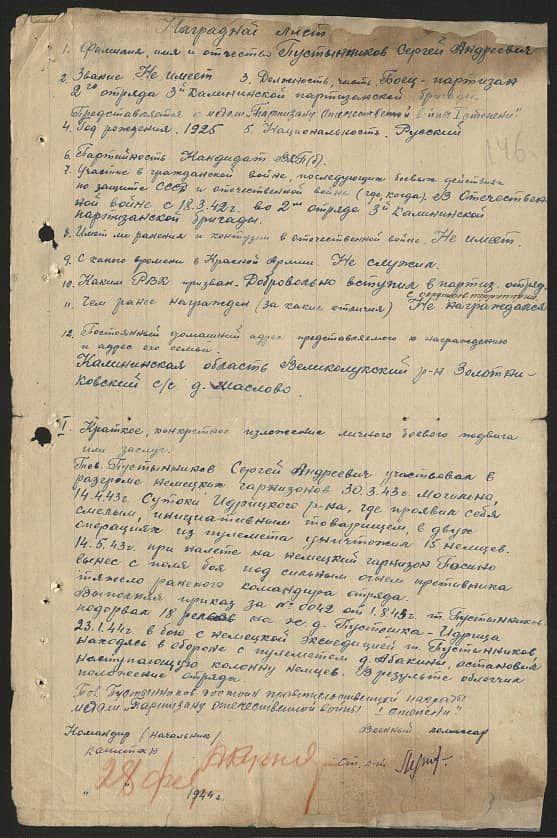 Наградной лист
1. Фамилия, имя и отчество Пустынников Сергей Андреевич
2. Звание Не имеет 3. Должность, часть Боец-партизан
2го отряда 3й Калининской партизанской бригады.
Представляется к медали „Партизану Отечественной войны I степени"
4. Год рождения. 1925 5. Национальность. Русский
146.
6. Партийность Кандидат ВКП(б).
7. Участие в гражданской войне, последующих боевых действиях
по защите СССР и отечественной войне (где, когда). В Отечествен
ной войне с 18.3.42г. во 2ом отряде 3й Калининской
партизанской бригады.
8. Имеет ли ранения и контузии в отечественной войне. Не имеет.
9. С какого времени в Красной Армии. Не служил.
10. Каким РВК призван. Добровольно вступил в партиз. отряд.
11. Чем ранее награжден (за какие отличия) Не награждался
12. Постоянный домашний адрес представляемого к награждению
и адрес его семьи.
Калининская область Великолукский р-н Золотни-
ковский с/с д. Маслово.
I. Краткое, конкретное изложение личного боевого подвига
или заслуг.
Тов. Пустынников Сергей Андреевич участвовал в
разгроме немецких гарнизонов 30.3.43г. Могилено,
14.4.43г. Сутоки Идрицкого р-на, где проявил себя
смелым, инициативным товарищем, в двух
операциях из пулемета уничтожил 15 немцев.
14.5.43г. при налете на немецкий гарнизон Пасино
вынес с поля боя под сильным огнем противника
тяжело раненого командира отряда.
Выполняя приказ за № 0042 от 1.8.43г. т. Пустынников
подорвал 18 рельс на ж.д. Пустошка-Идрица
23.1.44г. в бою с немецкой экспедицией т. Пустынников,
находясь в обороне с пулеметом д. Абакини, остановил
наступающую колонну немцев. В результе облегчил
положение отряда.
Тов. Пустынников достоин правительственной награды
медали „Партизану отечественной войны I степени"
Командир (начальник) Военный комиссар
капитан
ст. л-т
28 фев
" " 1944г.